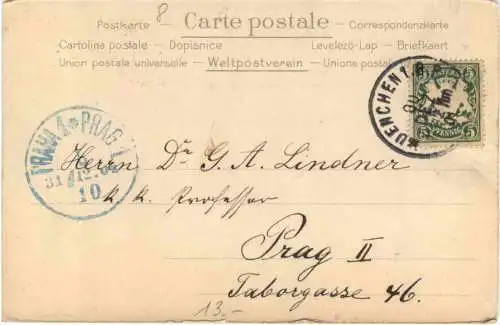 8
Postkarte — Carte postale — Correspondenzkarte
Cartolina postale – Dopisnice Levelező-Lap – Briefkaart
Union postale universelle – Weltpostverein – Unione postale
MUENCHEN 1. B.Z.
5 5
PFENNIG
PRAHA 1 * PRAG 1
31
10
Herrn Dr G. A. Lindner
k. k. Professor
Prag II
Taborgasse 46.
13.-